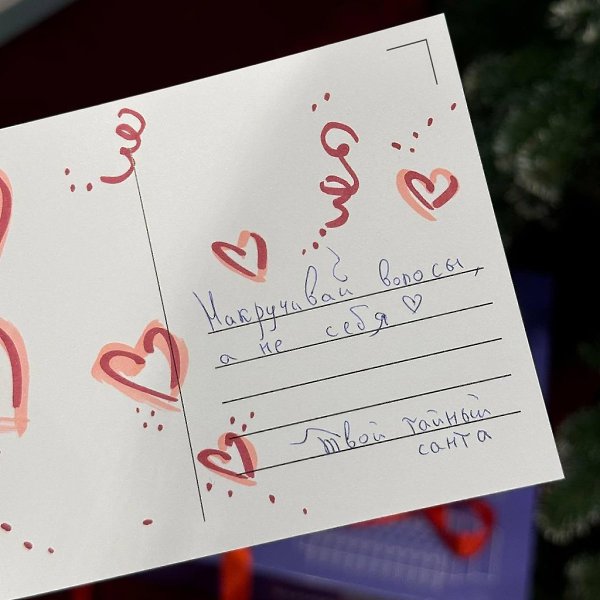 Накручивай волосы,
а не себя ♡
Твой тайный
санта